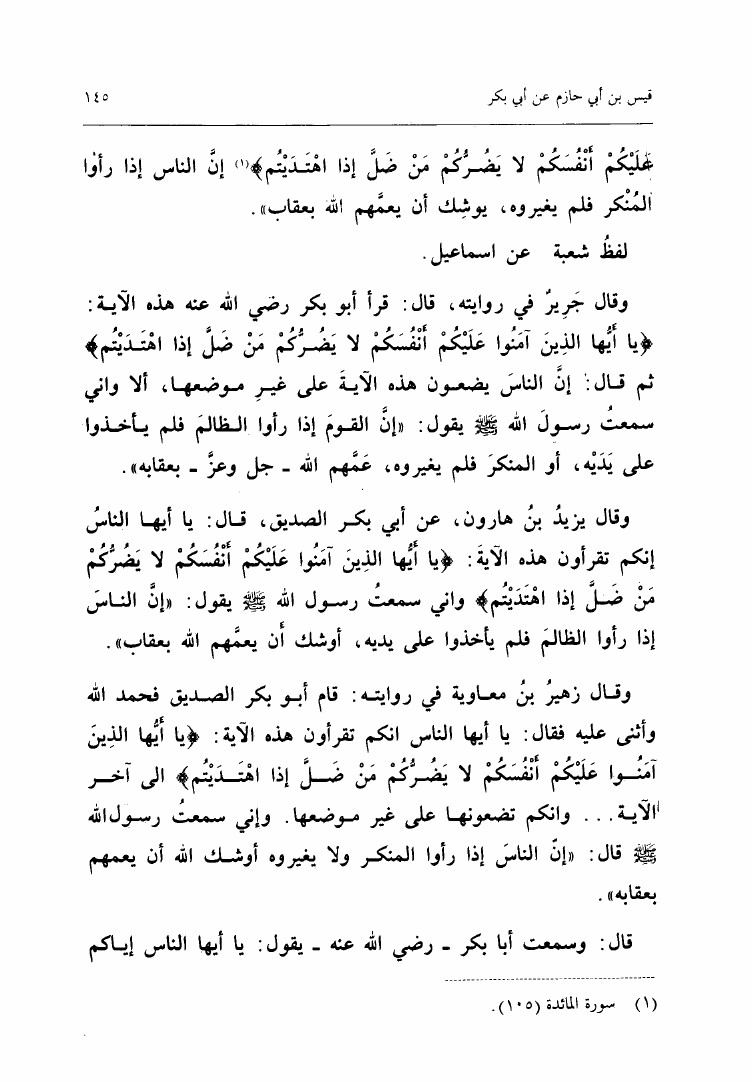 قيس بن أبي حازم عن أبي بكر
١٤٥
عَلَيْكُمْ أَنْفُسَكُمْ لا يَضُـرُّكُمْ مَنْ ضَلَّ إذا اهْتَـدَيْتُم﴾(١) إنَّ الناس إذا رأوا
المُنْكر فلم يغيروه، يوشِك أن يعمَّهم الله بعقاب».
لفظُ شعبة عن اسماعيل.
وقال جَرِيرٌ في روايته، قال: قرأ أبو بكر رضي الله عنه هذه الآيـة:
﴿يا أَيُّها الذِينَ آمَنُوا عَلَيْكُمْ أَنْفُسَكُمْ لا يَضُـرُّكُمْ مَنْ ضَلَّ إذا اهْتَـدَيْتُم﴾
ثم قـال: إنَّ الناسَ يضعـون هذه الآيـةَ على غيـرِ مـوضعهـا، ألا واني
سمعتُ رسـولَ الله ﷺ يقول: «إنَّ القـومَ إذا رأوا الـظالمَ فلم يـأخـذوا
على يَدَيْه، أو المنكرَ فلم يغيروه، عَمَّهم الله ـ جل وعزَّ ـ بعقابه».
وقال يزيدُ بنُ هارون، عن أبي بكـر الصديق، قـال: يا أيهـا الناسُ
إنكم تقرأون هذه الآيةَ: ﴿يا أَيُّها الذِينَ آمَنُوا عَلَيْكُمْ أَنْفُسَكُمْ لا يَضُرُّكُمْ
مَنْ ضَـلَّ إذا اهْتَدَيْتُم﴾ واني سمعتُ رسـول الله ﷺ يقول: «إنَّ النـاسَ
إذا رأوا الظالمَ فلم يأخذوا على يديه، أوشك أن يعمَّهم الله بعقاب».
وقـال زهيرُ بنُ معـاوية في روايتـه: قام أبـو بكر الصـديق فحمد الله
وأثنى عليه فقال: يا أيها الناس انكم تقرأون هذه الآية: ﴿يا أَيُّها الذِينَ
آمَنُـوا عَلَيْكُمْ أَنْفُسَكُمْ لا يَضُـرُّكُمْ مَنْ ضَـلَّ إذا اهْتَـدَيْتُم﴾ الى آخـر
الآيـة... وانكم تضعونهـا على غير مـوضعها. وإني سمعتُ رسول الله
ﷺ قال: «إنّ الناسَ إذا رأوا المنكـر ولا يغيروه أوشـك الله أن يعمهم
بعقابه».
قال: وسمعت أبا بكر ـ رضي الله عنه ـ يقول: يا أيها الناس إياكم
(١) سورة المائدة (١٠٥).